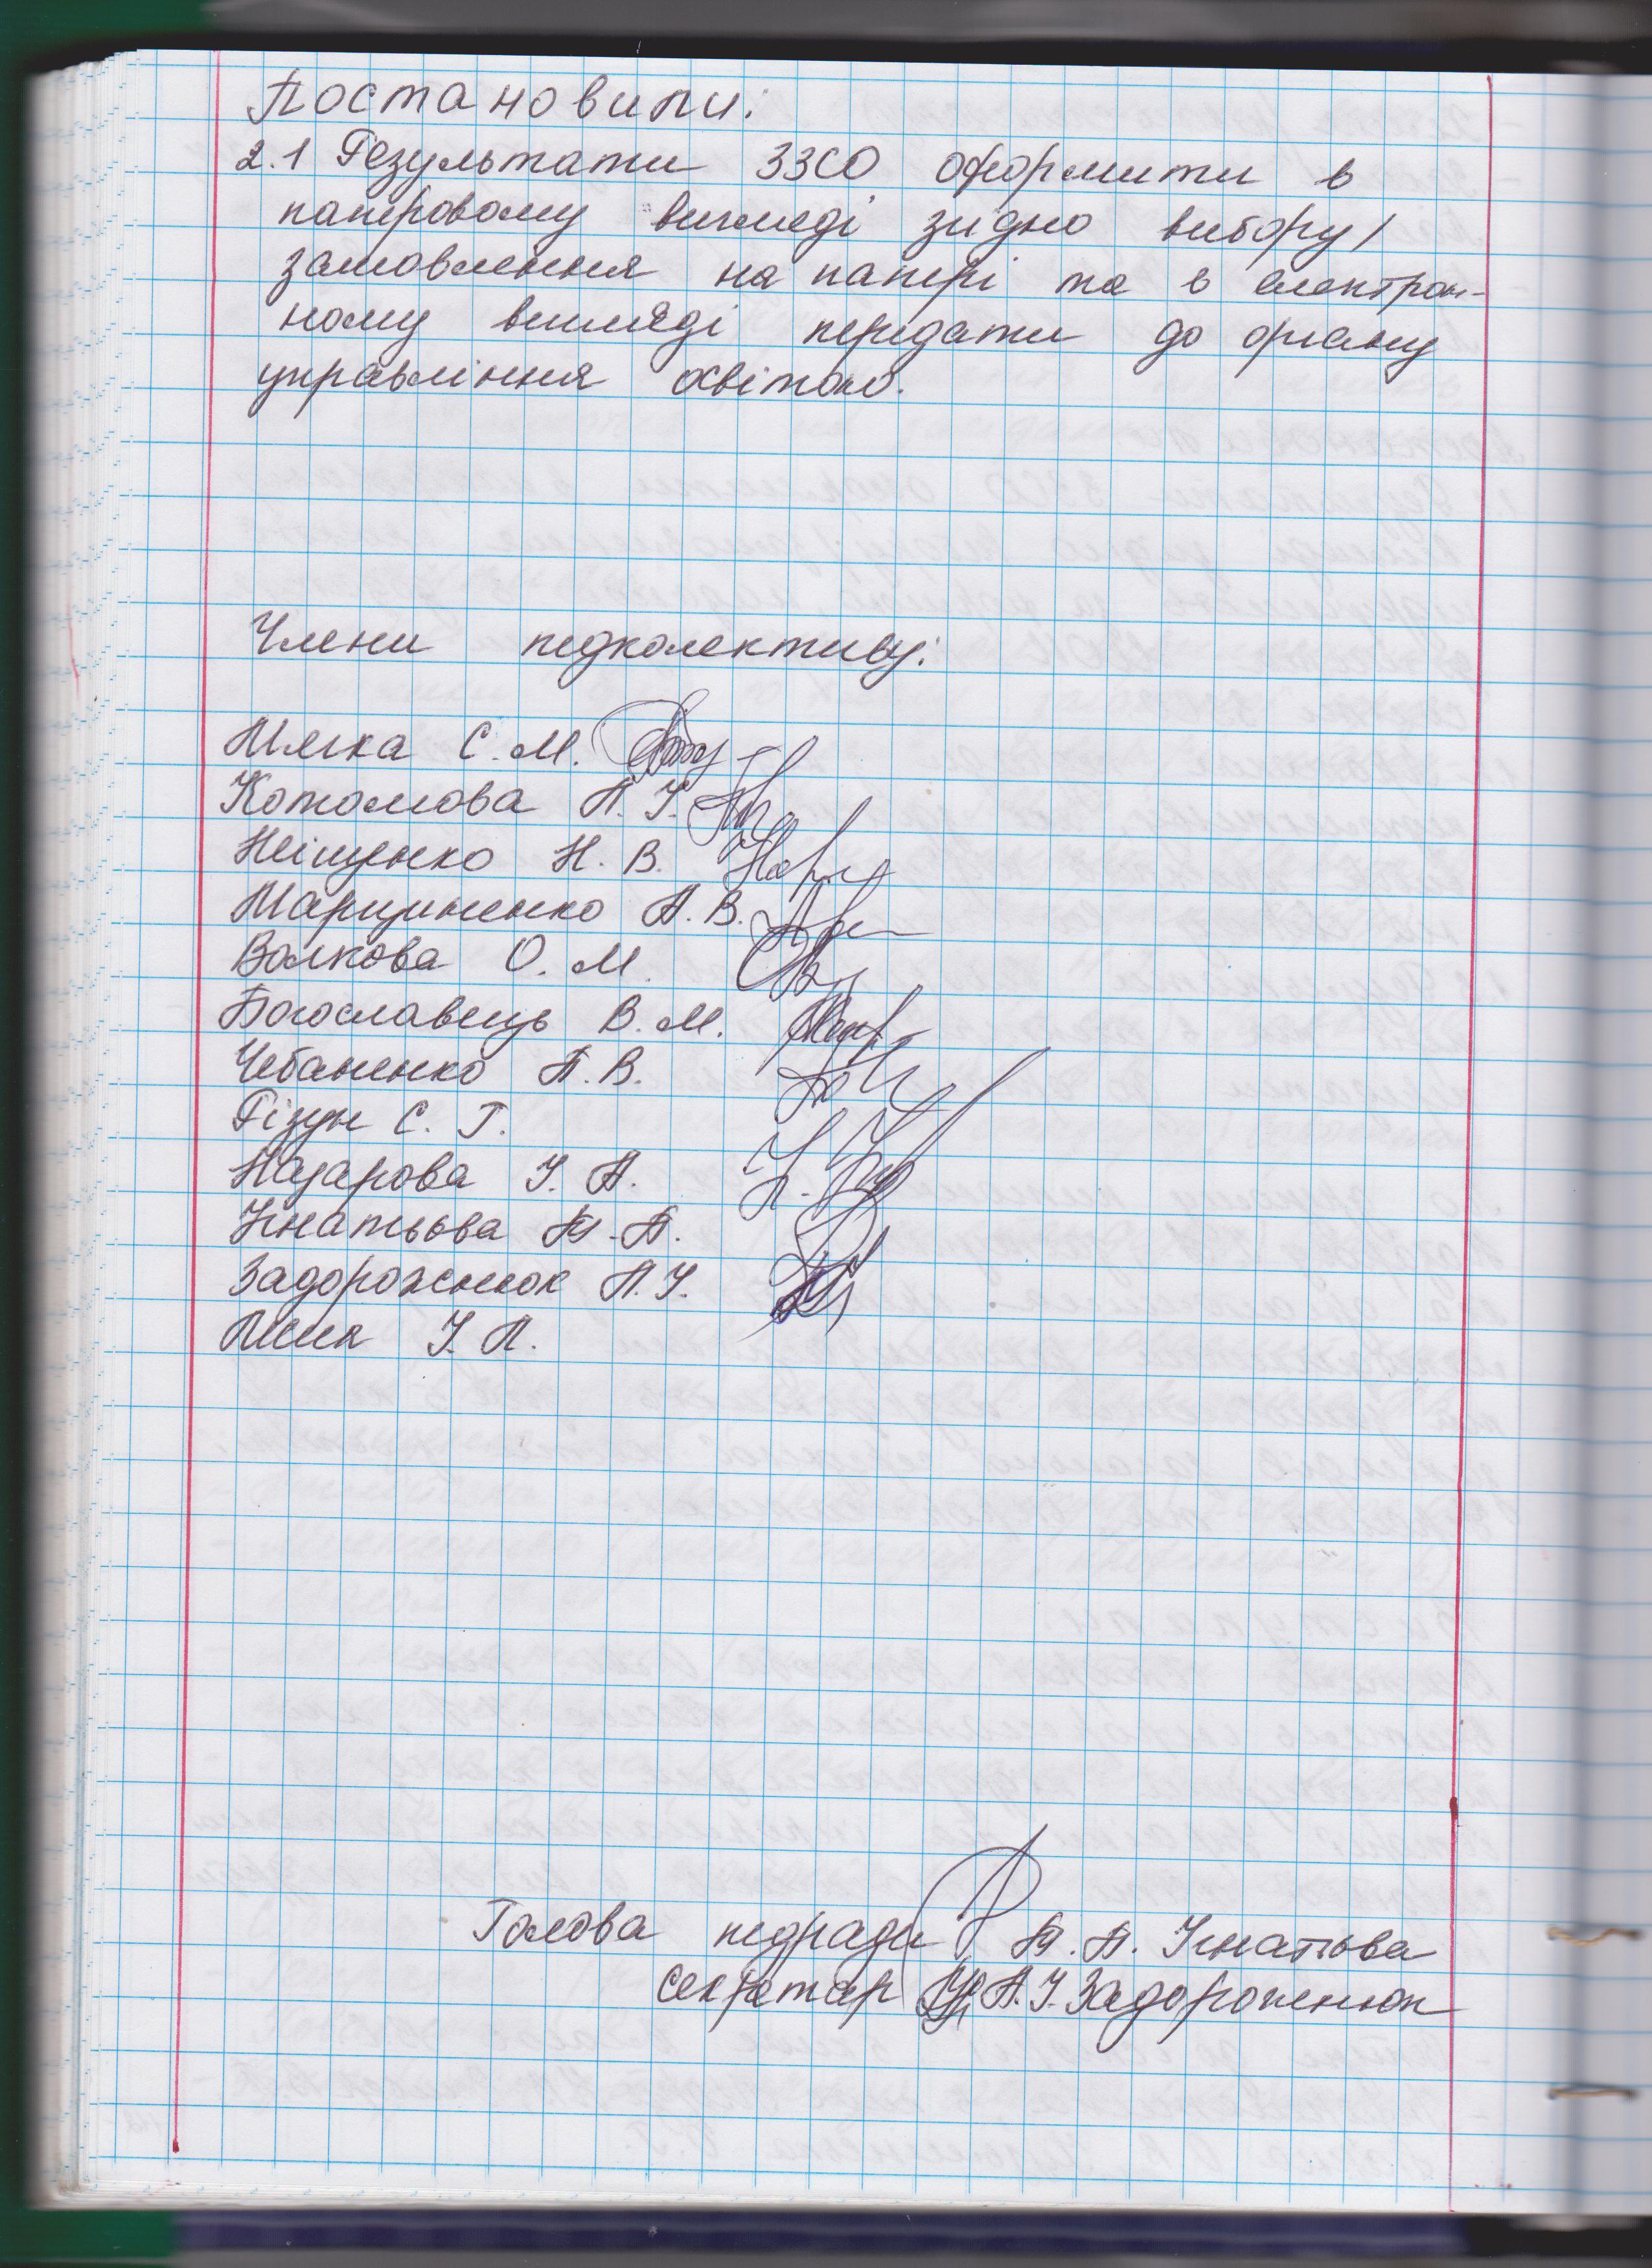 Постановили:
2.1 Результати ЗЗСО оформити в
паперовому вигляді згідно вибору/
замовлення на папері та в електрон-
ному вигляді передати до органу
управління освітою.
Члени педколективу:
С. М.
Котомова Л. І.
Ніщенко Н. В.
Марциненко А. В.
Волкова О. М.
Богославець В. М.
Чебаненко Л. В.
Різун С. Г.
Назарова І. А.
Ігнатьова Т. П.
Задорожнюк Л. І.
І. Л.
Голова педради Т. П. Ігнатьова
секретар Л. І. Задорожнюк